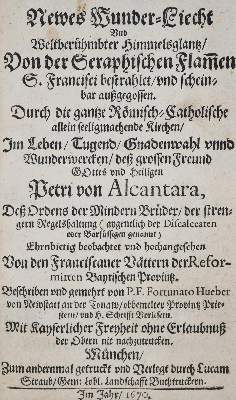 Newes Wunder-Liecht
Und
Weltberühmbter Himmelsglantz/
Von der Seraphischen Flam̃en
S. Francisci bestrahlet/ und schein-
bar außgegossen.
Durch die gantze Römisch-Catholische
allein seeligmachende Kirchen/
Im Leben/ Tugend/ Gnadenwahl vnnd
Wunderwercken/ deß grossen Freund
GOttes vnd Heiligen
Petri von Alcantara,
Deß Ordens der Mindern Brüder/ der stren-
gern Regelshaltung (aygentlich der Discalceaten
oder Barfüssigen genannt)
Ehrnbietig beobachtet vnd hochangesehen
Von den Franciscaner Vättern der Refor-
mirten Bayrischen Provintz.
Beschriben und gemehrt von P. F. Fortunato Hueber
von Newstatt an der Tonaw/ obbemelter Provintz Prie-
stern/ vnd H. Schrifft Verlesern.
Mit Kayserlicher Freyheit ohne Erlaubnuß
der Obern nit nachzutrucken.
München/
Zum andernmal getruckt vnd Verlegt durch Lucam
Straub/ Gem: Lobl. Landschafft Buchtruckern.
Im Jahr/ 1670.